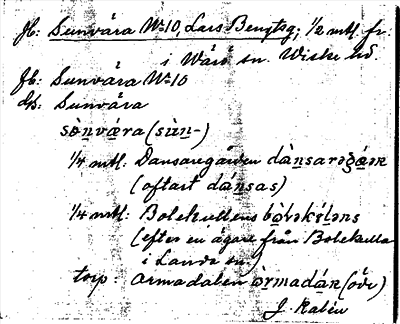 Jb: Sunvära No 10, Lars Bengtsg; 1/2 mtl. fr.
i Wärö sn. Wiske hd
Jb: Sunvära No 10
ds: Sunvära
sèn̲væra (sùn̲-)
1/4 mtl: Dansaregården dàn̲sarəgǡək
(oftast dán̲sas)
1/4 mtl: Bolekullens
(efter en ägare från Bolekulla
i Landa sn)
torp: Armadalen (öde)
J. Kalén